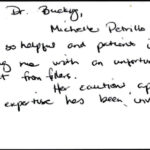 Dr. Buckys,
Michelle Petrillo
so helpful and patients i
ng me with an unfortun
ct from fillers.
Her caution, ap
expertise has been inv